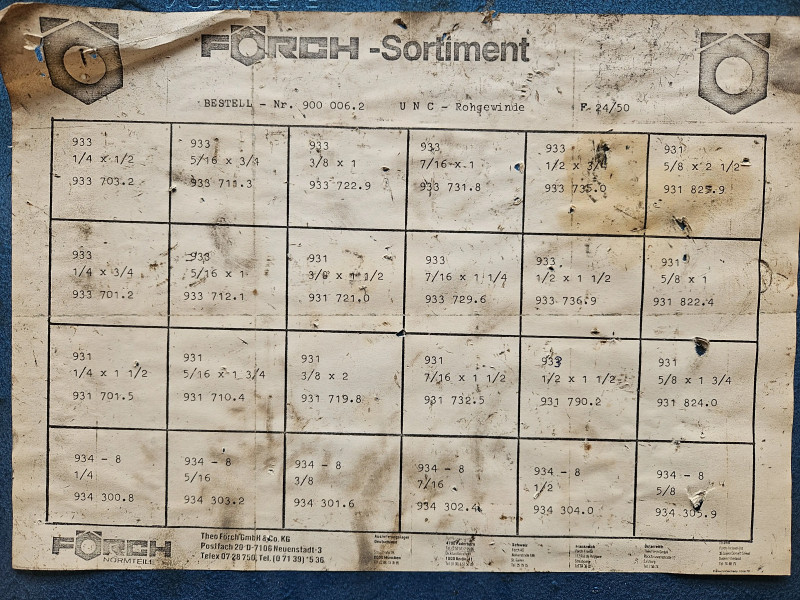 FÖRCH -Sortiment
BESTELL - Nr. 900 006.2 UNC - Rohgewinde F 24/50
933
1/4 x 1/2
933 703.2
933
5/16 x 3/4
933 711.3
933
3/8 x 1
933 722.9
933
7/16 x 1
933 731.8
933
1/2 x 3/4
933 735.0
931
5/8 x 2 1/2
931 825.9
933
1/4 x 3/4
933 701.2
933
5/16 x 1
933 712.1
931
3/8 x 1 1/2
931 721.0
933
7/16 x 1 1/4
933 729.6
933
1/2 x 1 1/2
933 736.9
931
5/8 x 1
931 822.4
931
1/4 x 1 1/2
931 701.5
931
5/16 x 1 3/4
931 710.4
931
3/8 x 2
931 719.8
931
7/16 x 1 1/2
931 732.5
933
1/2 x 1 1/2
931 790.2
931
5/8 x 1 3/4
931 824.0
934 - 8
1/4
934 300.8
934 - 8
5/16
934 303.2
934 - 8
3/8
934 301.6
934 - 8
7/16
934 302.4
934 - 8
1/2
934 304.0
934 - 8
5/8
934 305.9
FÖRCH
NORMTEILE
Theo Förch GmbH & Co. KG
Postfach 20 · D-7106 Neuenstadt-3
Telex 07 28 750, Tel. (0 71 39) *5 36